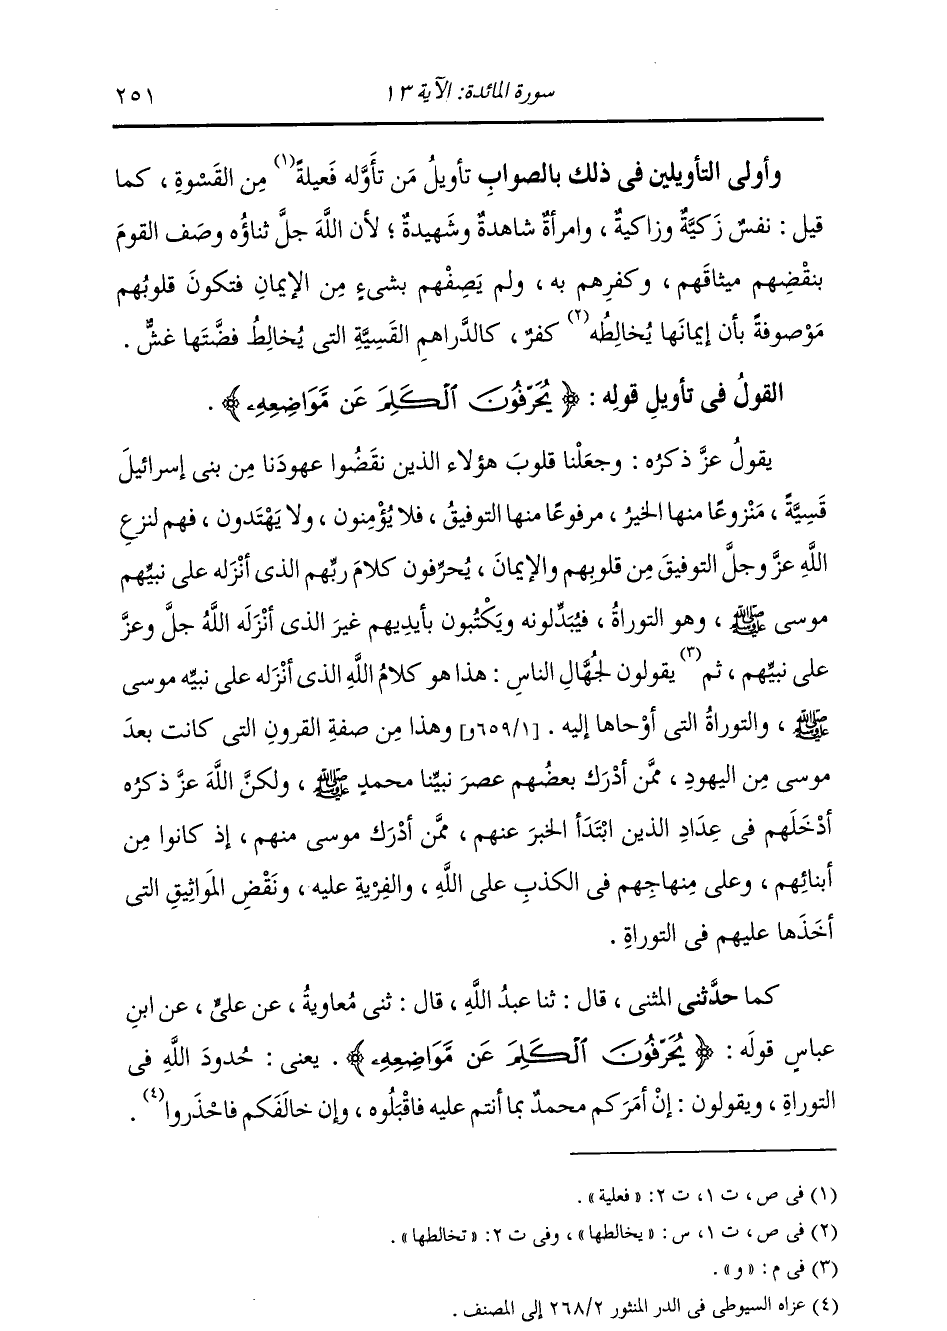 سورة المائدة: الآية ١٣
٢٥١
وأولى التأويلين فى ذلك بالصوابِ تأويلُ مَن تأَوَّله فَعيلةً(١) مِن القَسْوةِ ، كما
قيل : نفسٌ زَكيَّةٌ وزاكيةٌ ، وامرأةٌ شاهدةٌ وشَهيدةٌ ؛ لأن اللَّهَ جلَّ ثناؤُه وصَف القومَ
بنقْضِهم ميثاقَهم ، وكفرِهم به ، ولم يَصِفْهم بشىءٍ مِن الإيمانِ فتكونَ قلوبُهم
مَوْصوفةً بأن إيمانَها يُخالِطُه(٢) كفرٌ ، كالدَّراهمِ القَسِيَّةِ التى يُخالِطُ فضَّتَها غشٌّ .
القولُ فى تأويلِ قولِه : ﴿ يُحَرِّفُونَ ٱلْكَلِمَ عَن مَّوَاضِعِهِۦ ﴾ .
يقولُ عزَّ ذكرُه : وجعَلْنا قلوبَ هؤلاء الذين نقَضُوا عهودَنا مِن بنى إسرائيلَ
قَسِيَّةً ، مَنْزوعًا منها الخيرُ ، مرفوعًا منها التوفيقُ ، فلا يُؤْمِنون ، ولا يَهْتَدون ، فهم لنزعِ
اللَّهِ عزَّ وجلَّ التوفيقَ مِن قلوبِهم والإيمانَ ، يُحرِّفون كلامَ ربِّهم الذى أنْزَله على نبيِّهم
موسى ﷺ ، وهو التوراةُ ، فيُبَدِّلونه ويَكْتُبون بأيدِيهم غيرَ الذى أنْزَله اللَّهُ جلَّ وعزَّ
على نبيِّهم ، ثم(٣) يقولون لجُهَّالِ الناسِ : هذا هو كلامُ اللَّهِ الذى أنْزَله على نبيِّه موسى
ﷺ ، والتوراةُ التى أوْحاها إليه . [١/٦٥٩و] وهذا مِن صفةِ القرونِ التى كانت بعدَ
موسى مِن اليهودِ ، ممَّن أدْرَك بعضُهم عصرَ نبيِّنا محمدٍ ﷺ ، ولكنَّ اللَّهَ عزَّ ذكرُه
أدْخَلَهم فى عِدَادِ الذين ابْتَدَأ الخبرَ عنهم ، ممَّن أدْرَك موسى منهم ، إذ كانوا مِن
أبنائِهم ، وعلى مِنهاجِهم فى الكذبِ على اللَّهِ ، والفِرْيةِ عليه ، ونَقْضِ المَواثيقِ التى
أخَذَها عليهم فى التوراةِ .
كما حدَّثنى المثنى ، قال : ثنا عبدُ اللَّهِ ، قال : ثنى مُعاويةُ ، عن علىٍّ ، عن ابنِ
عباسٍ قولَه : ﴿ يُحَرِّفُونَ ٱلْكَلِمَ عَن مَّوَاضِعِهِۦ ﴾ . يعنى : حُدودَ اللَّهِ فى
التوراةِ ، ويقولون : إنْ أمَرَكم محمدٌ بما أنتم عليه فاقْبَلُوه ، وإن خالَفَكم فاحْذَروا(٤) .
(١) فى ص ، ت ١ ، ت ٢ : « فعلية » .
(٢) فى ص ، ت ١ ، س : « يخالطها » ، وفى ت ٢ : « تخالطها » .
(٣) فى م : « و » .
(٤) عزاه السيوطى فى الدر المنثور ٢٦٨/٢ إلى المصنف .